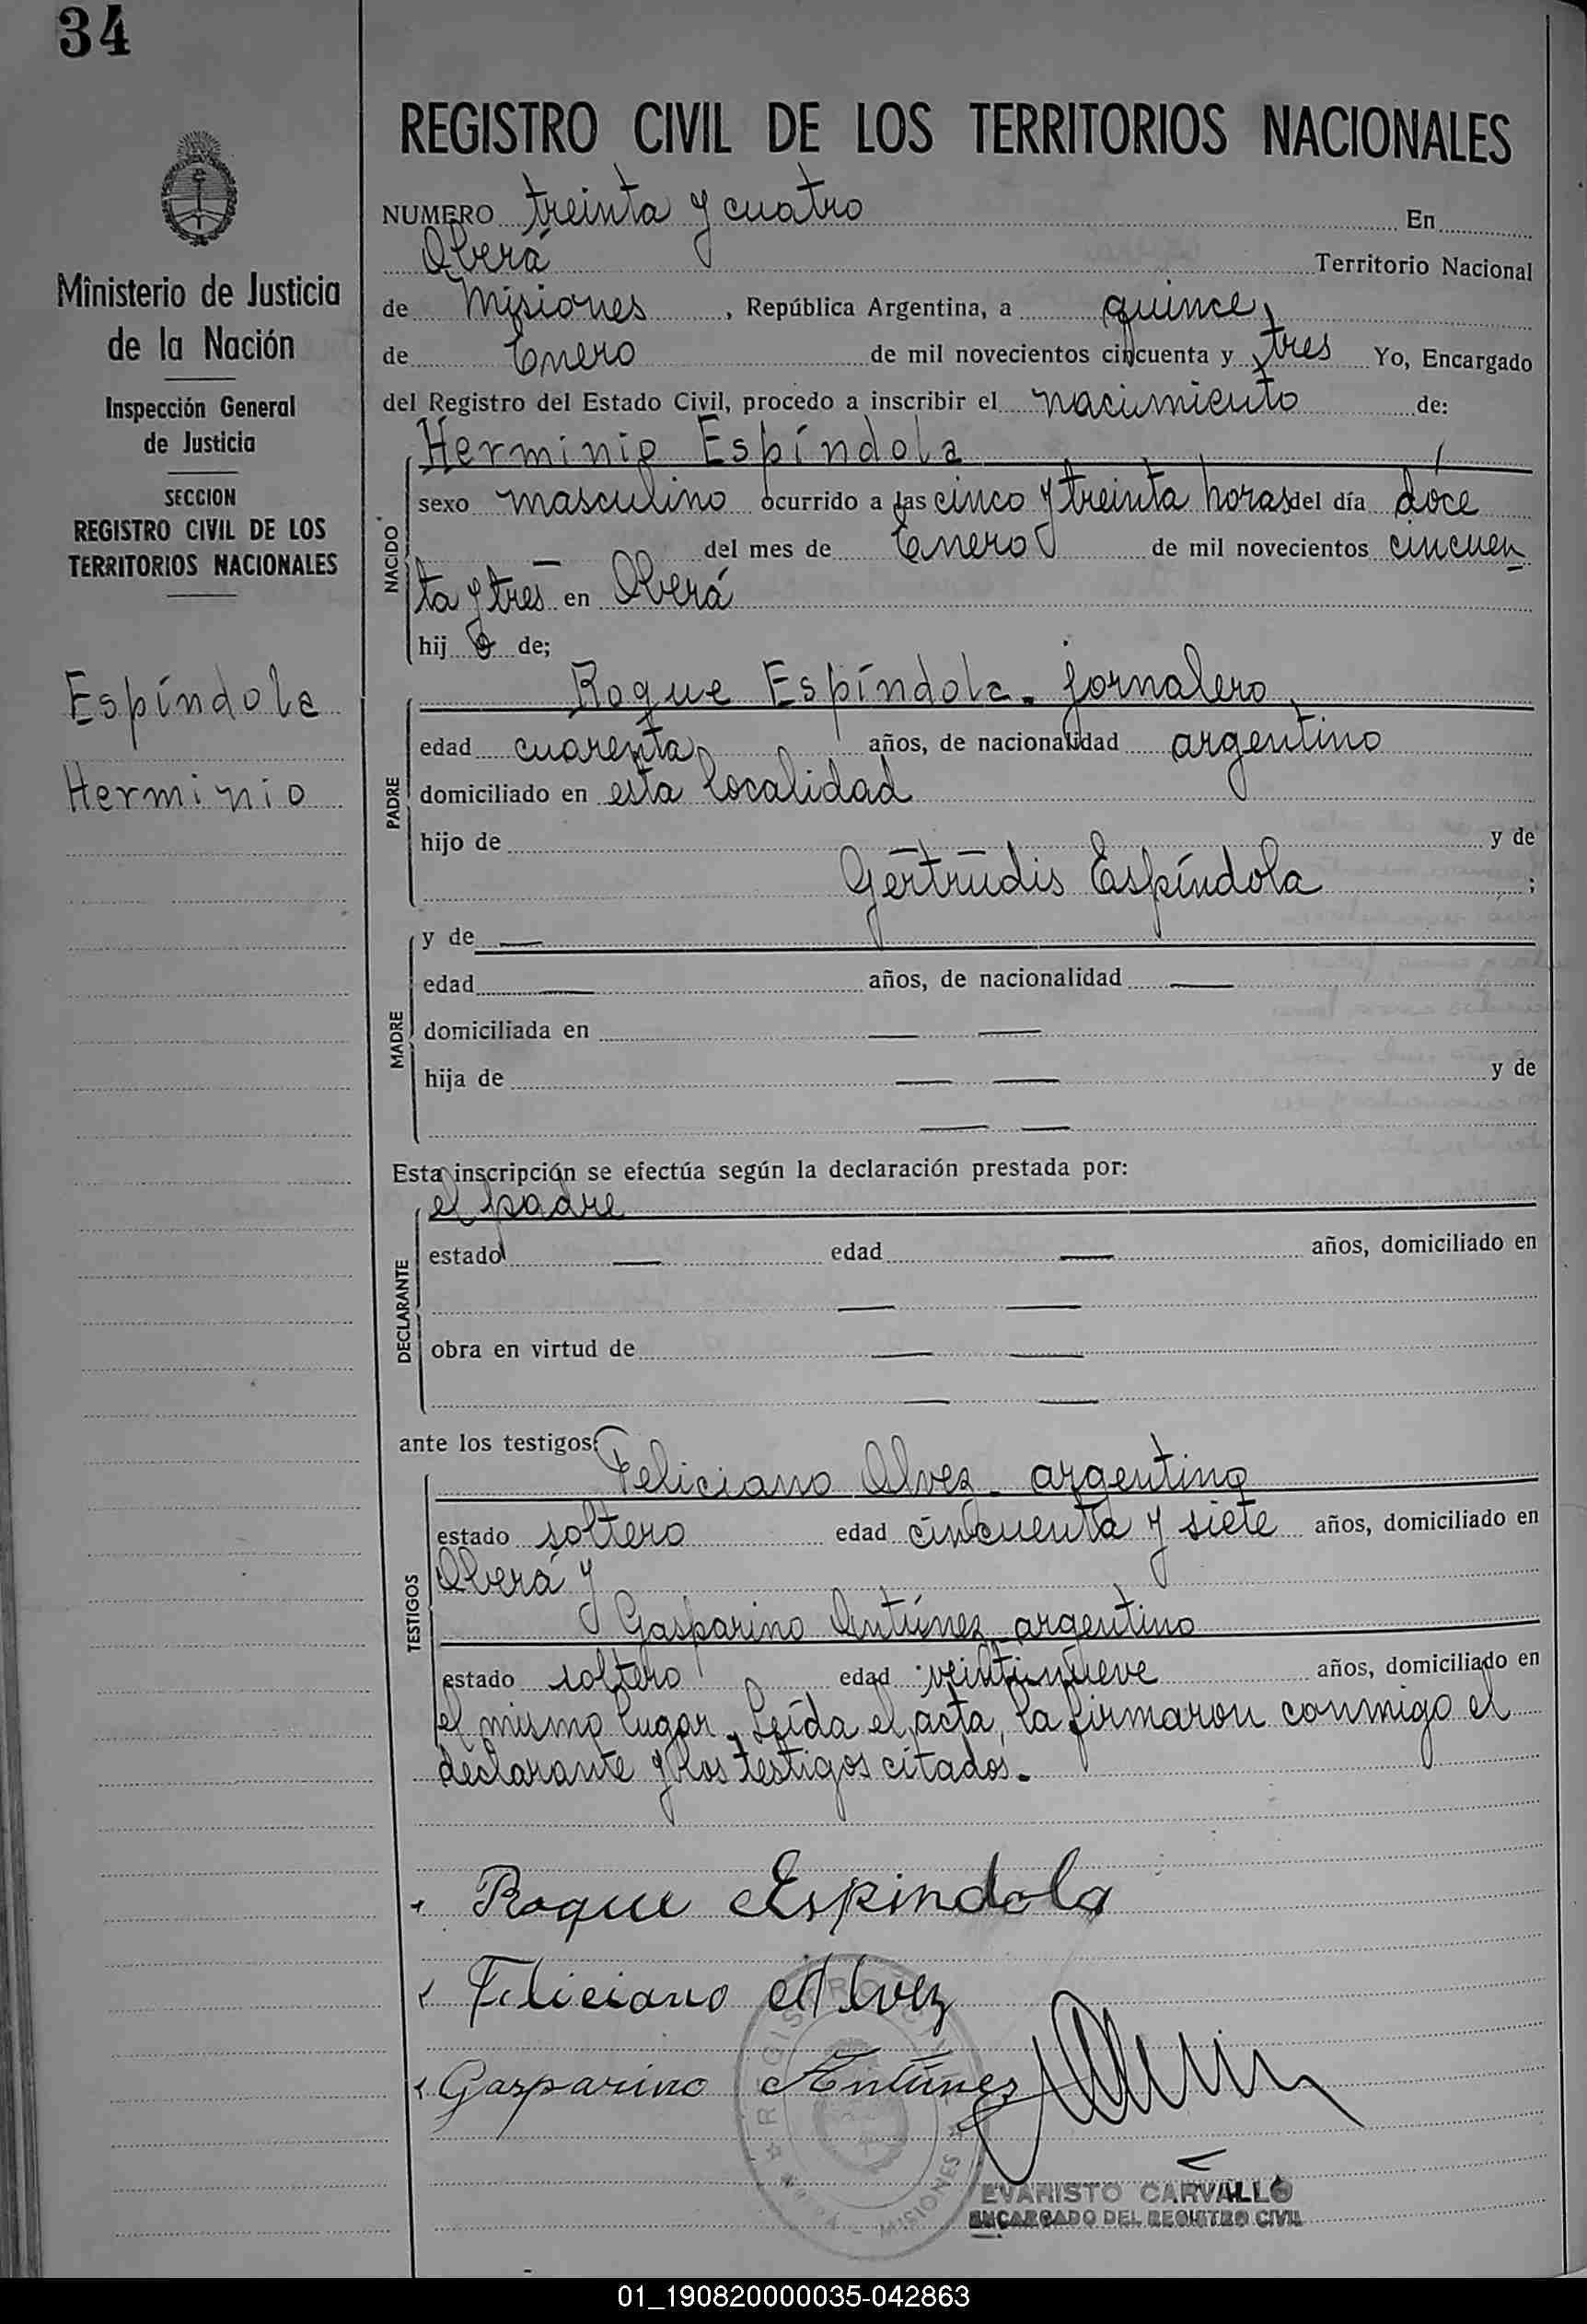 34
Ministerio de Justicia
de la Nación
Inspección General
de Justicia
SECCION
REGISTRO CIVIL DE LOS
TERRITORIOS NACIONALES
Espíndola
Herminio
REGISTRO CIVIL DE LOS TERRITORIOS NACIONALES
NUMERO treinta y cuatro En
Oberá Territorio Nacional
de Misiones, República Argentina, a quince
de Enero de mil novecientos cincuenta y tres Yo, Encargado
del Registro del Estado Civil, procedo a inscribir el nacimiento de:
NACIDO
Herminio Espíndola
sexo masculino ocurrido a las cinco y treinta horas del día doce
del mes de Enero de mil novecientos cincuen
ta y tres en Oberá
hij o de;
PADRE
Roque Espíndola. jornalero,
edad cuarenta años, de nacionalidad argentino
domiciliado en esta localidad
hijo de y de
Gertrudis Espíndola ;
MADRE
y de —
edad — años, de nacionalidad —
domiciliada en — —
hija de — — y de
— —
Esta inscripción se efectúa según la declaración prestada por:
DECLARANTE
el padre
estado — edad — años, domiciliado en
— —
obra en virtud de — —
— —
ante los testigos:
TESTIGOS
Feliciano Alvez - argentino
estado soltero edad cincuenta y siete años, domiciliado en
Oberá y
Gasparino Antúnez argentino
estado soltero edad veintinueve años, domiciliado en
el mismo lugar. Leída el acta, la firmaron conmigo el
declarante y los testigos citados.
Roque Espindola
Feliciano Alvez
Gasparino Antúnez
REGISTRO CIVIL
MISIONES
EVARISTO CARVALLO
ENCARGADO DEL REGISTRO CIVIL
01_190820000035-042863